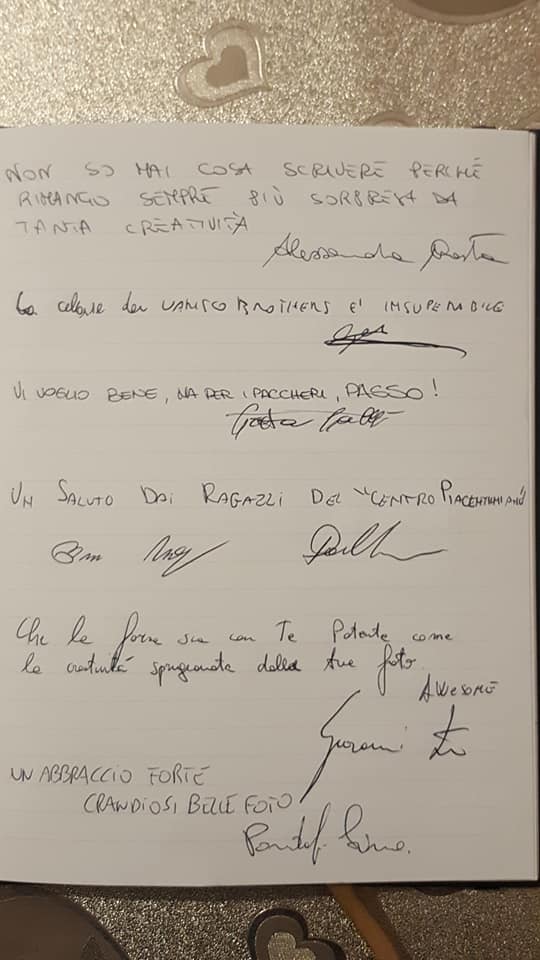 NON SO MAI COSA SCRIVERE PERCHÉ
RIMANGO SEMPRE PIÙ SORPRESA DA
TANTA CREATIVITÀ
Alessandra
BROTHERS E' INSUPERABILE
VI VOGLIO BENE, MA PER I PACCHERI, PASSO!
UN SALUTO DAI RAGAZZI DEL "CENTRO
Che la forza sia con Te Potente come
la creatività sprigionata dalle tue foto.
AWESOME
Giovanni
UN ABBRACCIO FORTE
GRANDIOSI BELLE FOTO